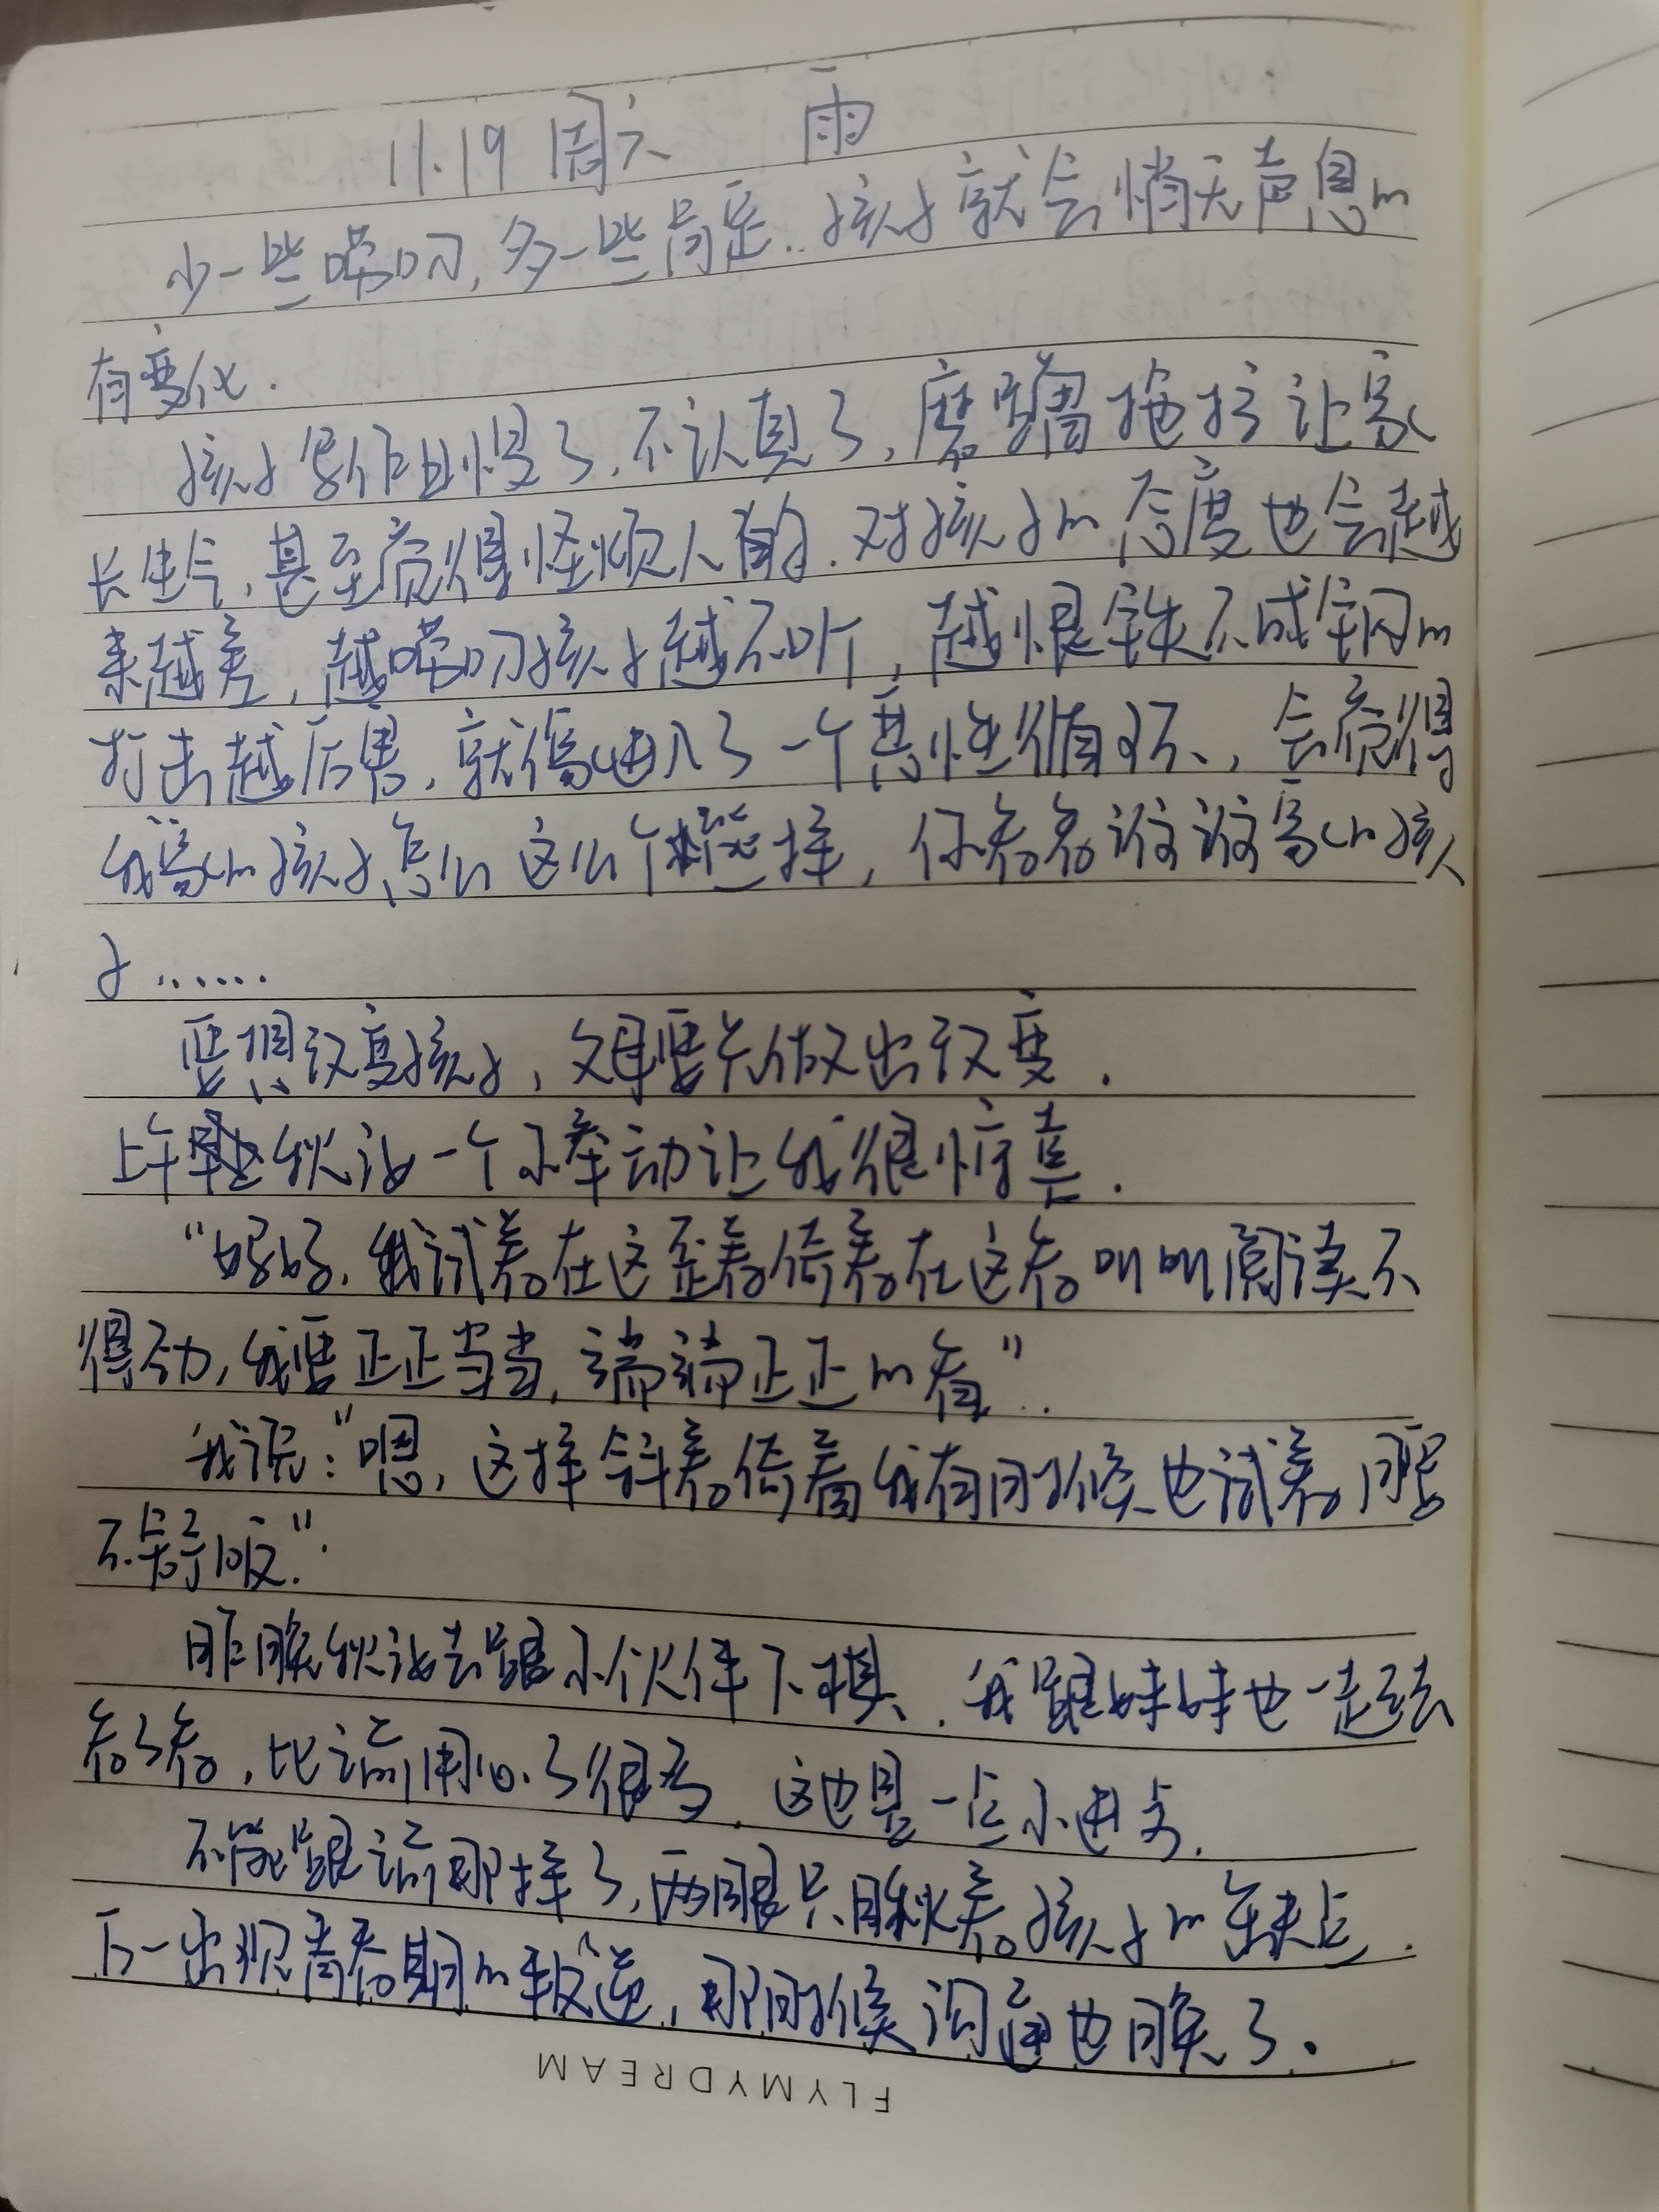 11.19 周六 雨
少一些唠叨,多一些肯定..孩子就会悄无声息的
有变化.
孩子写作业慢了.不认真了,磨蹭拖拉让家
长生气,甚至觉得怪烦人的.对孩子的态度也会越
来越差,越唠叨孩子越不听,越恨铁不成钢的
打击越厉害,就像进入了一个恶性循环、,会觉得
我家的孩子怎么这么个样,你看看谁谁家的孩
子......
要想改变孩子,父母要先做出改变.
上午秋泓一个小举动让我很惊喜.
“妈妈,我试着在这歪着倚着在这看叭叭阅读不
得劲,我要正正当当,端端正正的看”..
我说:“嗯,这样斜着倚着我有时候也试着腰
不舒服.”.
昨晚秋泓去跟小伙伴下棋、.我跟妹妹也一起去
看了看,比之前用心了很多.这也是一点小进步.
不能跟之前那样了,两眼只瞅着孩子的缺点.
万一出现青春期的叛逆,那时候沟通也晚了.
FLYMYDREAM